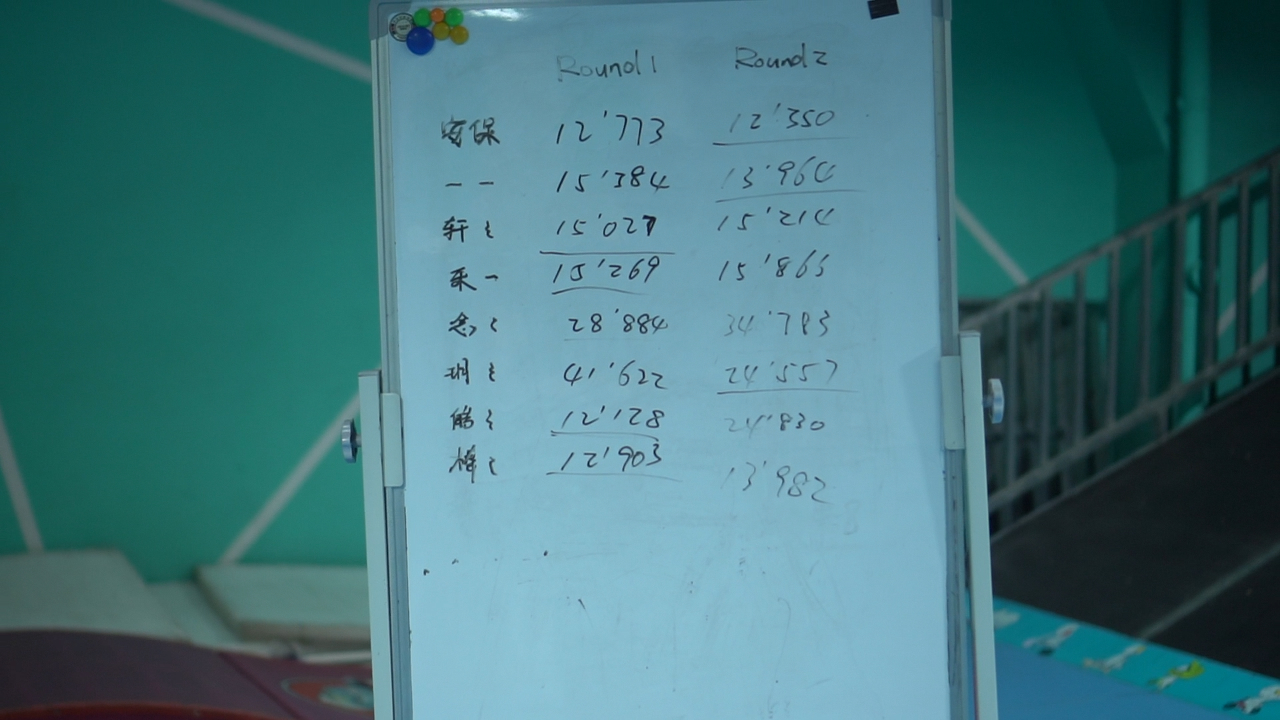 Round 1 Round 2
安保 12'773 12'350
一一 15'384 13'964
轩〻 15'027 15'214
采一 15'269 15'865
念〻 28'884 34'783
玥〻 41'622 24'557
皓〻 12'128 24'830
梓〻 12'903 13'982